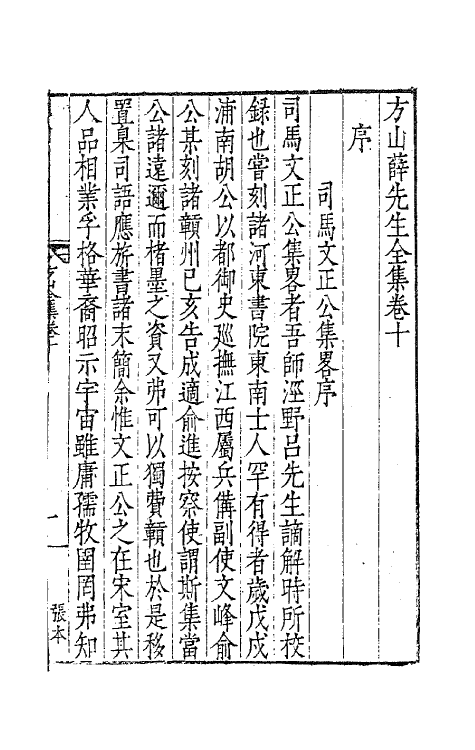 方山薛先生全集卷十
序
司馬文正公集畧序
司馬文正公集畧者吾師涇野呂先生謫解時所校
録也嘗刻諸河東書院東南士人罕有得者歲戊戌
浦南胡公以都御史巡撫江西屬兵備副使文峰俞
公某刻諸贑州已亥告成適俞進按察使謂斯集當
公諸遠邇而楮墨之資又弗可以獨費贑也於是移
置臬司語應旂書諸末簡余惟文正公之在宋室其
人品相業孚格華裔昭示宇宙雖庸孺牧圉罔弗知
方山全集卷十
一
張本